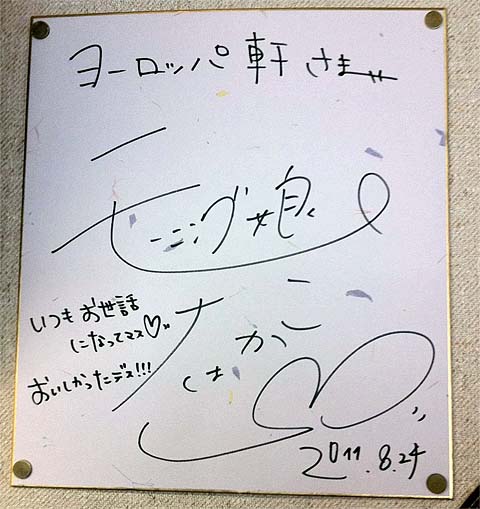 ヨーロッパ軒さま
モーニング娘。
いつもお世話
になってマス♡
おいしかったデス!!!
2011.8.24